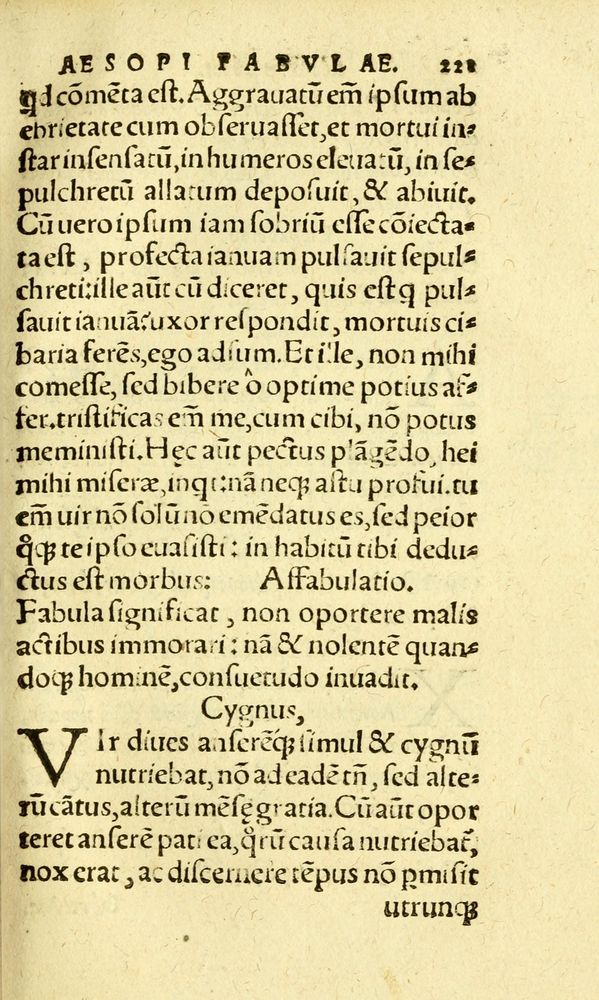 AESOPI FABVLAE. 221
qd cōmēta est. Aggrauatū em̄ ipsum ab
ebrietate cum obseruasset, et mortui in-
star insensatū, in humeros eleuatū, in se-
pulchretū allatum deposuit, & abiuit.
Cū uero ipsum iam sobriū esse cōiecta-
ta est, profecta ianuam pulsauit sepul-
chreti: ille aūt cū diceret, quis est q̄ pul-
sauit ianuā? uxor respondit, mortuis ci-
baria ferēs, ego adsum. Et ille, non mihi
comesse, sed bibere ô optime potius af-
fer. tristificas em̄ me, cum cibi, nō potus
meministi. Hęc aūt pectus plāgēdo, hei
mihi miseræ, inqt: nā neq; astu profui. tu
em̄ uir nō solū nō emēdatus es, sed peior
q̊q; te ipso euasisti: in habitū tibi dedu-
ctus est morbus: Affabulatio.
Fabula significat, non oportere malis
actibus immorari: nā & nolentē quan-
doq; hominē, consuetudo inuadit.
Cygnus,
VIr diues anserēq; simul & cygnū
nutriebat, nō ad eadē tn̄, sed alte-
rū cātus, alterū mēsę gratia. Cū aūt opor
teret anserē pati ea, q̊rū causa nutriebat̃,
nox erat, ac discernere tēpus nō ꝑmisit
utrunq;